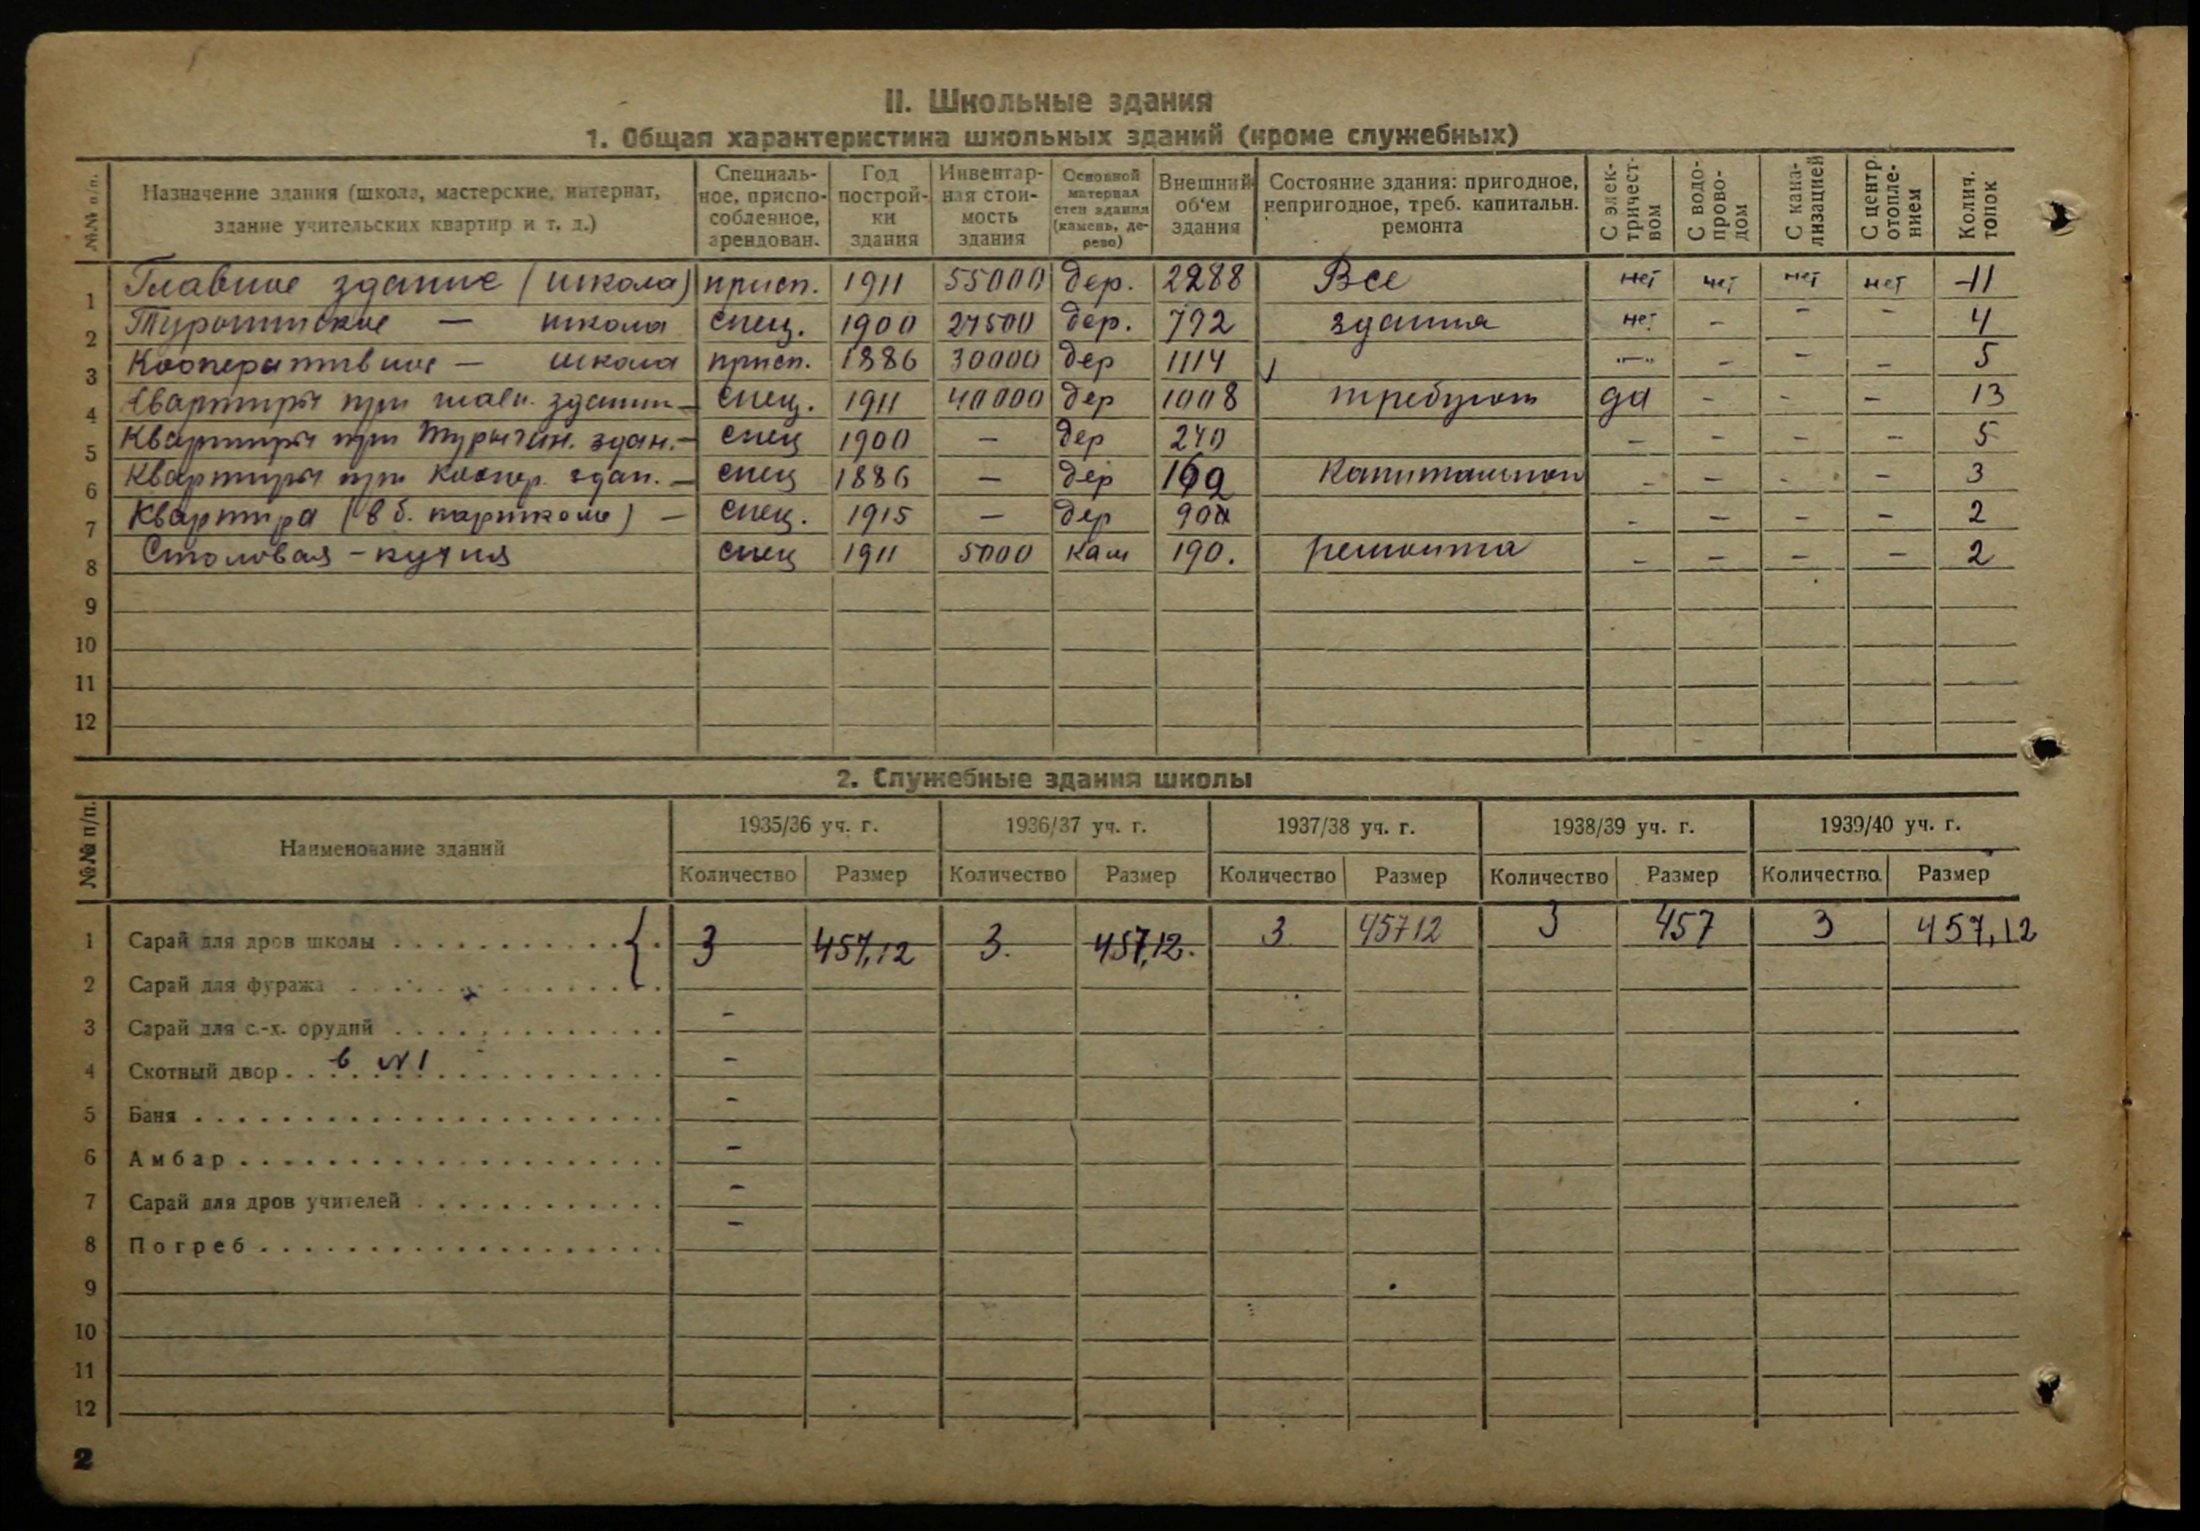 II. Школьные здания
1. Общая характеристика школьных зданий (кроме служебных)
№№ п/п. Назначение здания (школа, мастерские, интернат, здание учительских квартир и т. д.) Специальное, приспособленное, арендован. Год постройки здания Инвентарная стоимость здания Основной материал стен здания (камень, дерево) Внешний об'ем здания Состояние здания: пригодное, непригодное, треб. капитальн. ремонта С электричеством С водопроводом С канализацией С центр. отоплением Колич. топок
1 Главное здание (школа) присп. 1911 55000 дер. 2288 Все нет нет нет нет 11
2 — школа спец. 1900 27500 дер. 792 здания нет – – – 4
3 Кооперативное — школа присп. 1886 30000 дер 1114 –"– – – – 5
4 Квартиры при главн. здании – спец. 1911 40000 дер 1008 требуют да – – – 13
5 Квартиры при Турыгин. здан. – спец 1900 — дер 240 – – – – 5
6 Квартиры при коопер. здан. – спец 1886 — дер капитальном – – – – 3
7 Квартира (в б. парткоме) – спец. 1915 — дер – – – – 2
8 Столовая – кухня спец 1911 5000 кам 190. ремонта – – – – 2
9
10
11
12
2. Служебные здания школы
№№ п/п. Наименование зданий 1935/36 уч. г. 1936/37 уч. г. 1937/38 уч. г. 1938/39 уч. г. 1939/40 уч. г.
Количество Размер Количество Размер Количество Размер Количество Размер Количество Размер
1 Сарай для дров школы 3 457,12 3. 457,12. 3 45712 3 457 3 457,12
2 Сарай для фуража
3 Сарай для с.-х. орудий –
4 Скотный двор в №1 –
5 Баня –
6 Амбар –
7 Сарай для дров учителей –
8 Погреб –
9
10
11
12
2